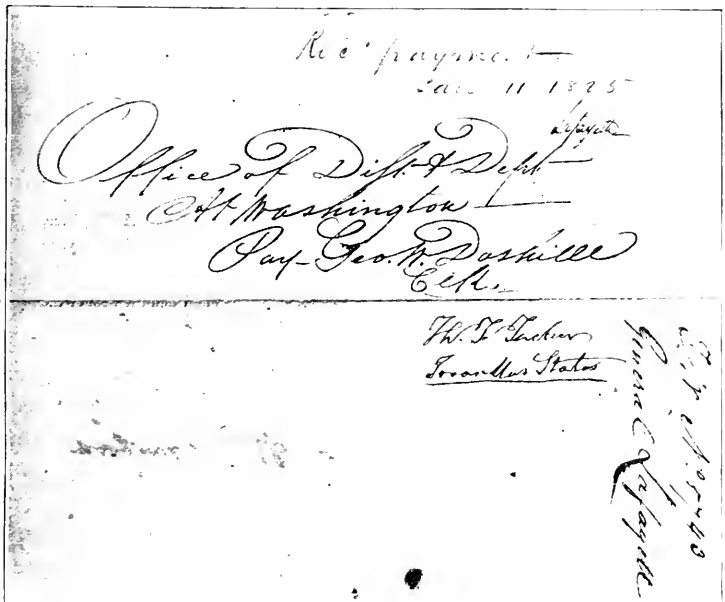 Rec payment
Jan 11 1825
Lafayette
Office of Disct & Dept
At Washington
Pay Geo. W. Dashiell
Clk.
Th. T. Tucker
Treas U States
General Lafayette